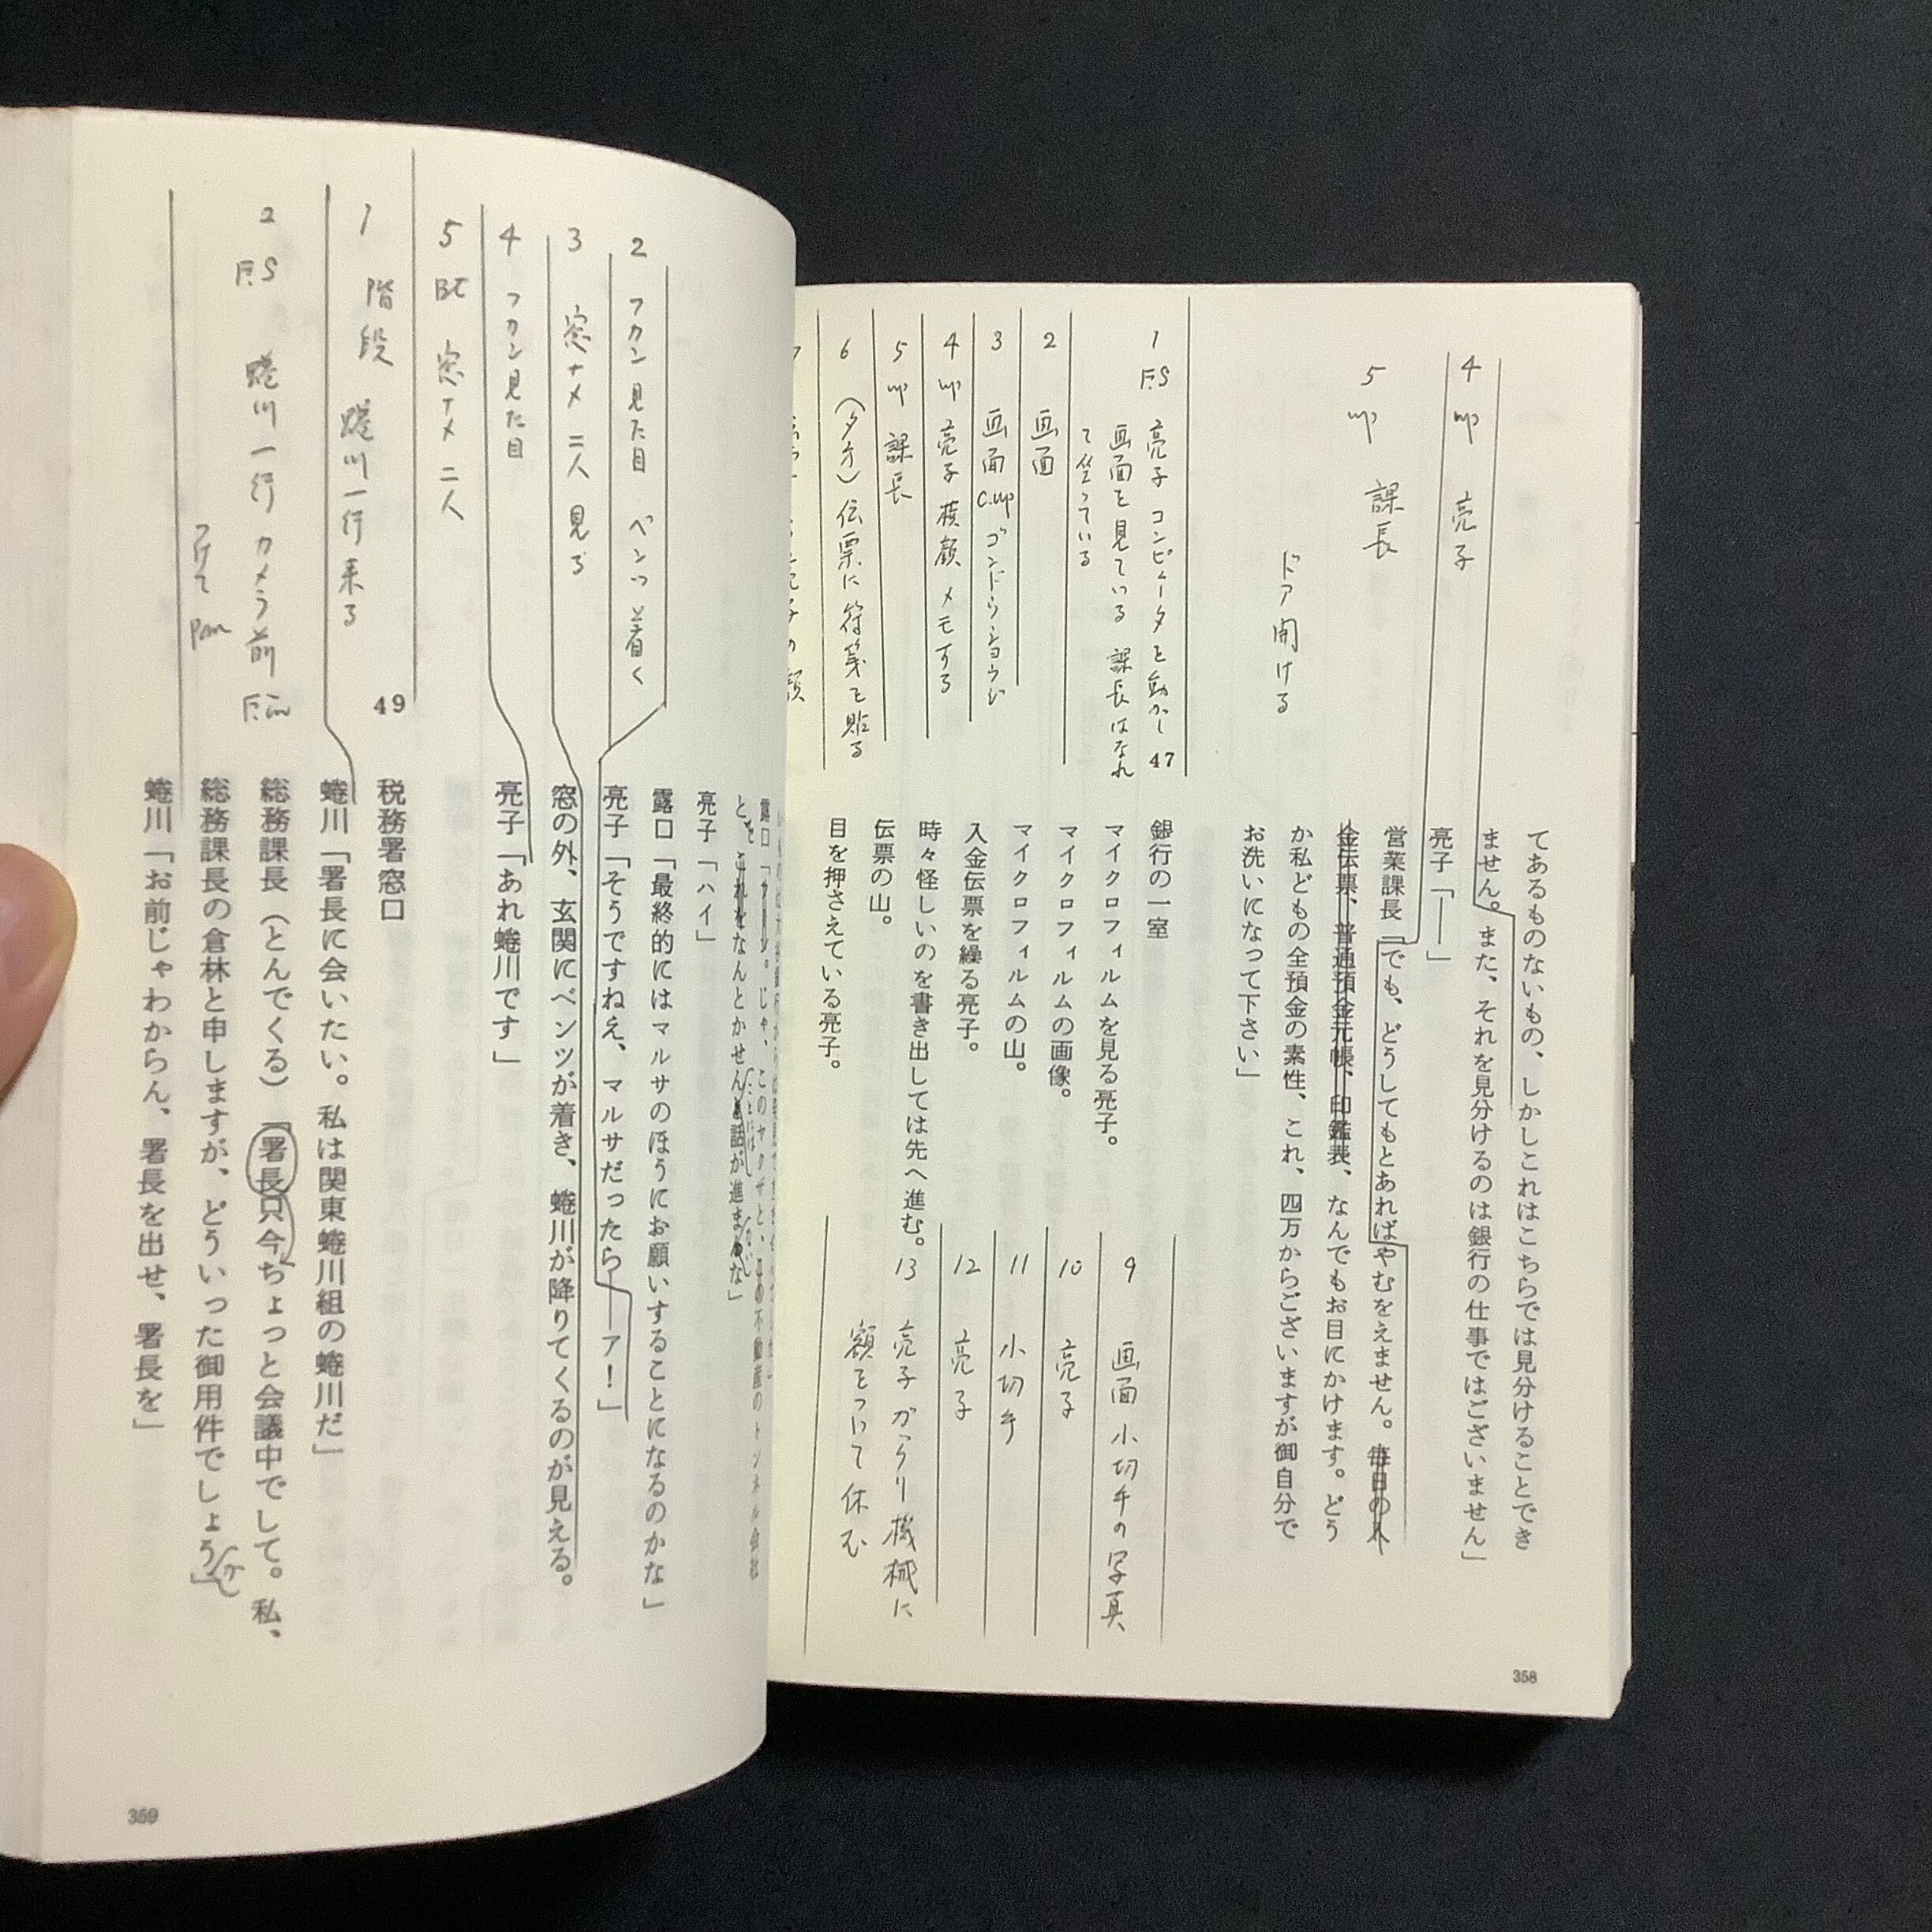 4 up 亮子
5 up 課長
ドア開ける
てあるものないもの、しかしこれはこちらでは見分けることでき
ません。また、それを見分けるのは銀行の仕事ではございません」
亮子「——」
営業課長「でも、どうしてもとあればやむをえません。毎日の入
金伝票、普通預金元帳、印鑑表、なんでもお目にかけます。どう
か私どもの全預金の素性、これ、四万からございますが御自分で
お洗いになって下さい」
47
1 F.S 亮子 コンピュータを動かし
画面を見ている 課長はなれ
て坐っている
2 画面
3 画面 C.up
4 up 亮子 横顔 メモする
5 up 課長
6 (夕方)伝票に符箋を貼る
7
銀行の一室
マイクロフィルムを見る亮子。
マイクロフィルムの画像。
マイクロフィルムの山。
入金伝票を繰る亮子。
時々怪しいのを書き出しては先へ進む。
伝票の山。
目を押さえている亮子。
9 画面 小切手の写真
10 亮子
11 小切手
12 亮子
13 亮子 がっくり機械に
額をつけて休む
358
2 フカン見た目 ベンツ着く
3 窓ナメ 二人 見る
4 フカン見た目
5 BC 窓ナメ 二人
露口「じゃ、このヤクザと、この不動産のトンネル会社
と、これをなんとかせんと話が進まんな」
亮子「ハイ」
露口「最終的にはマルサのほうにお願いすることになるのかな」
亮子「そうですねえ、マルサだったら——ア！」
窓の外、玄関にベンツが着き、蜷川が降りてくるのが見える。
亮子「あれ蜷川です」
49
1 階段 蜷川一行来る
2 F.S 蜷川一行 カメラ前 F.in
つけて Pan
税務署窓口
蜷川「署長に会いたい。私は関東蜷川組の蜷川だ」
総務課長（とんでくる）「署長只今ちょっと会議中でして。私、
総務課長の倉林と申しますが、どういった御用件でしょう」か
蜷川「お前じゃわからん、署長を出せ、署長を」
359